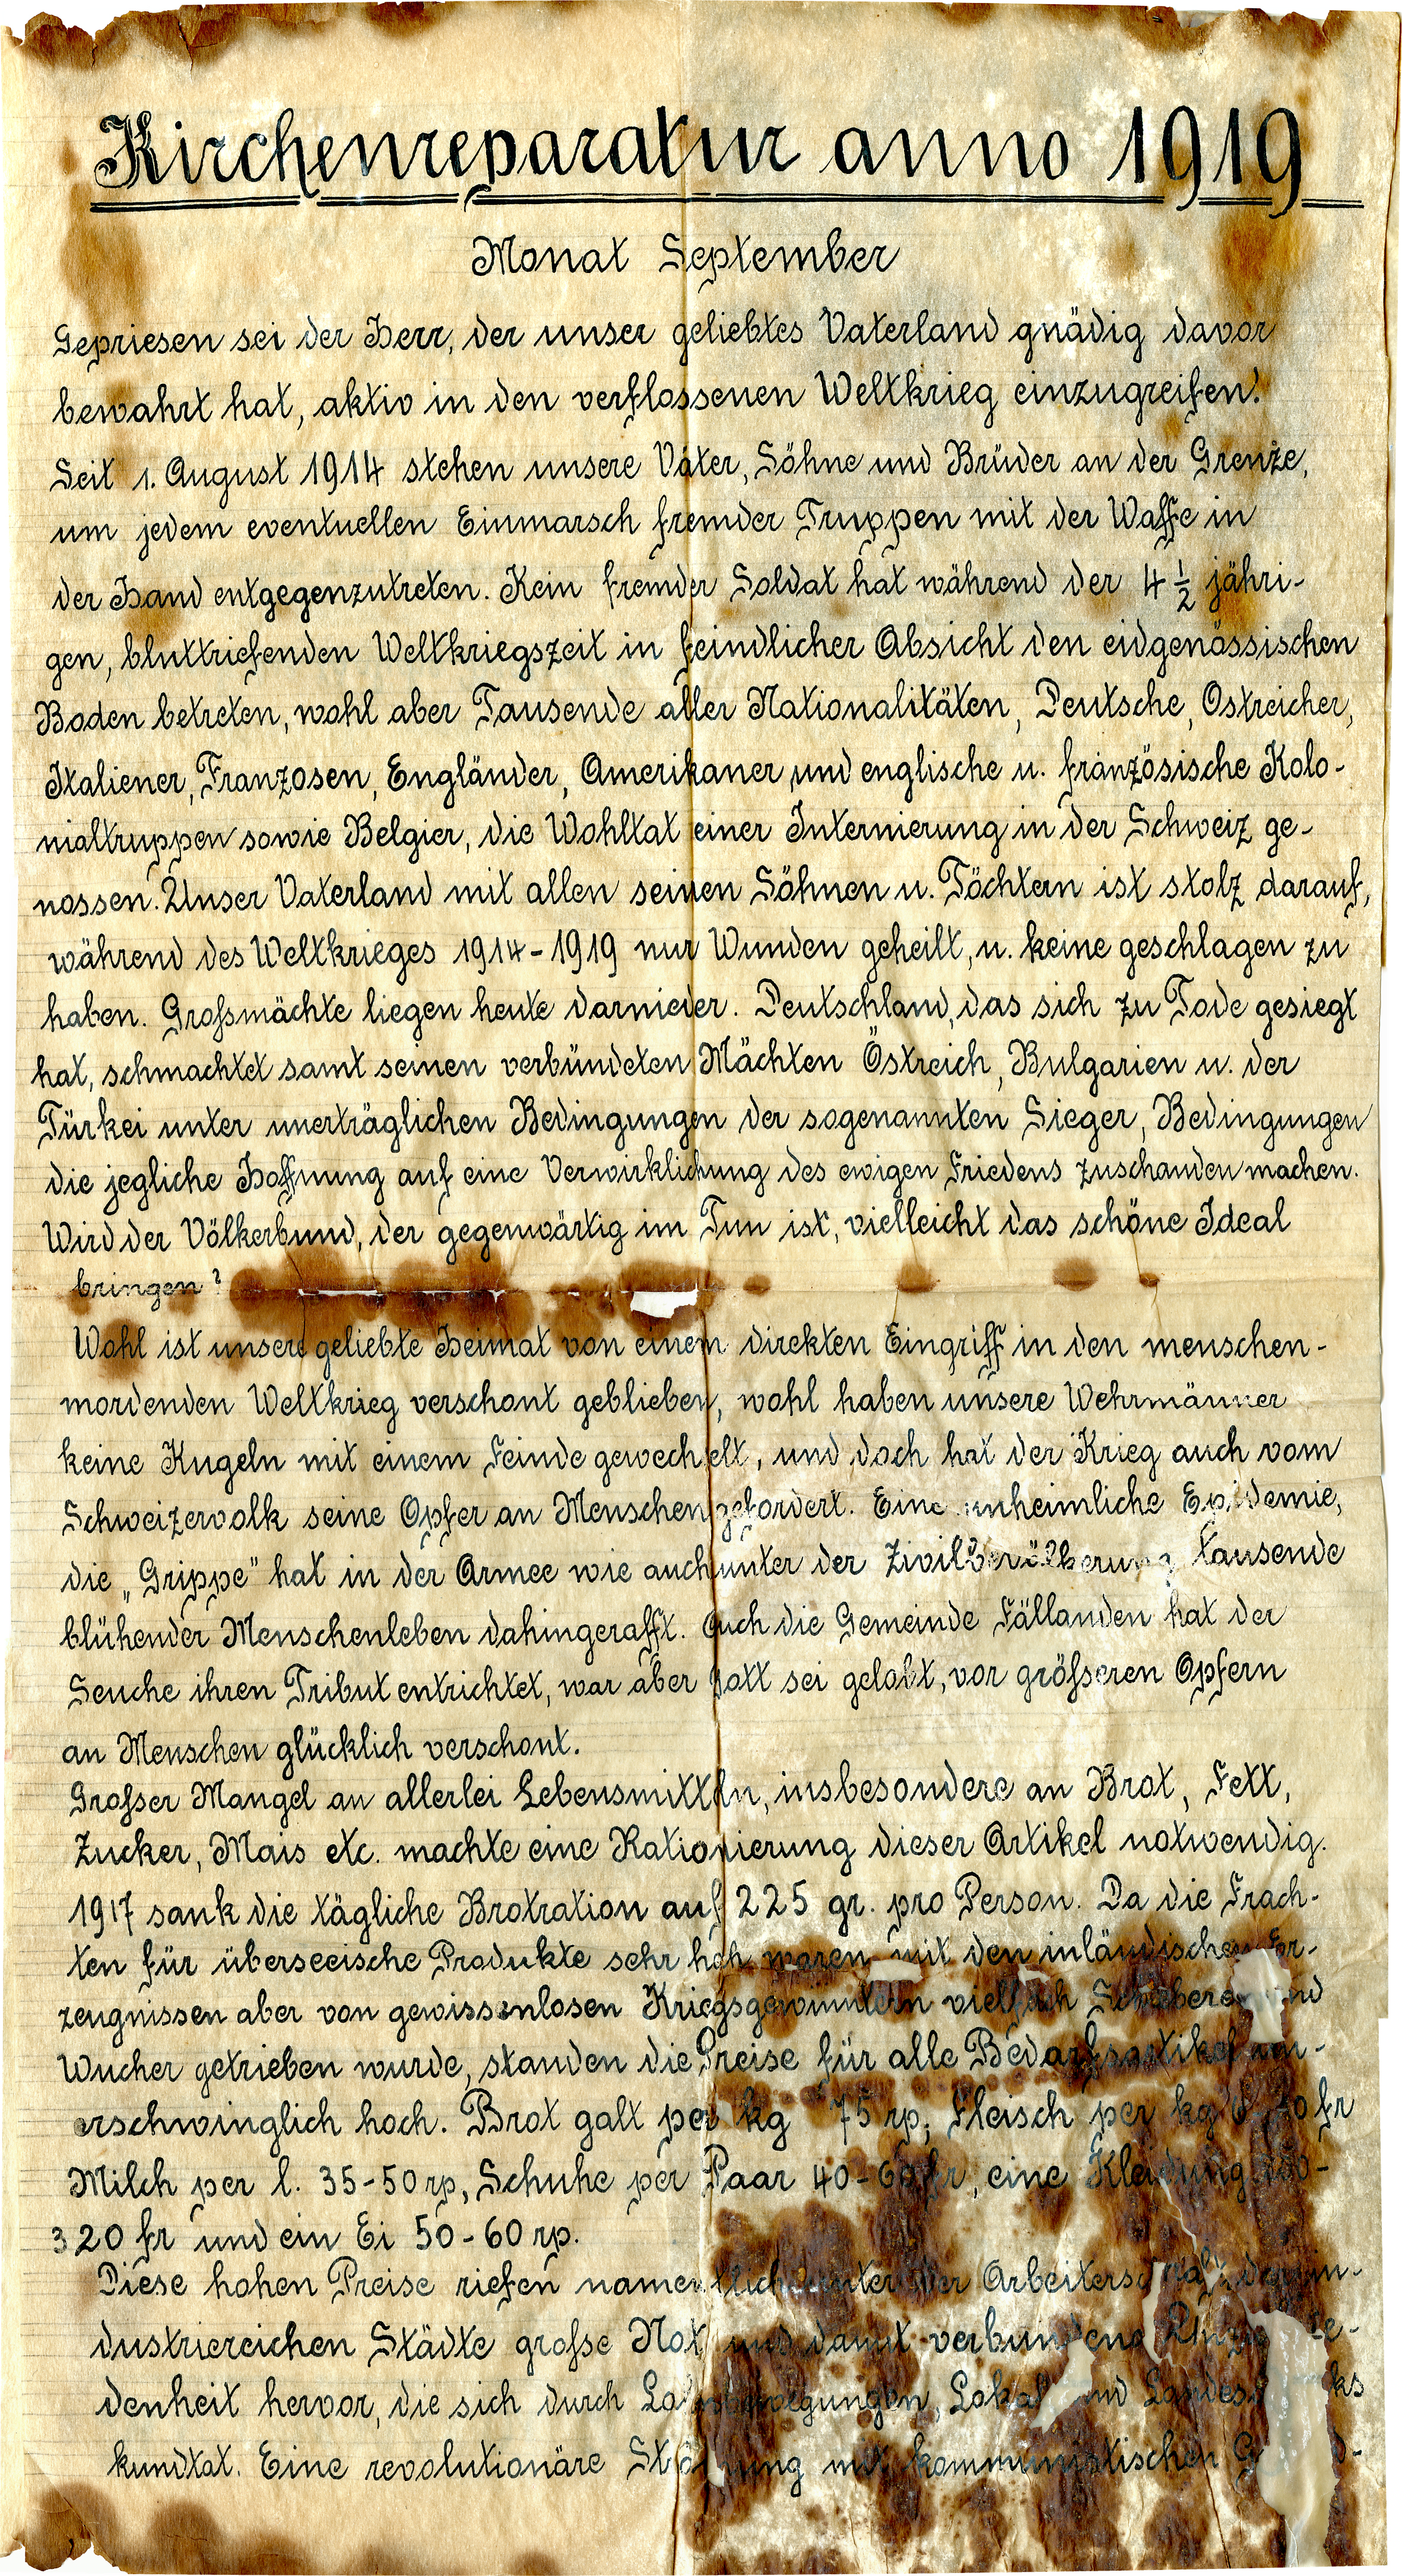 Kirchenreparatur anno 1919
Monat September
Gepriesen sei der Herr, der unser geliebtes Vaterland gnädig davor
bewahrt hat, aktiv in den verflossenen Weltkrieg einzugreifen!
Seit 1. August 1914 stehen unsere Väter, Söhne und Brüder an der Grenze,
um jedem eventuellen Einmarsch fremder Truppen mit der Waffe in
der Hand entgegenzutreten. Kein fremder Soldat hat während der 4 ½ jähri-
gen, bluttriefenden Weltkriegszeit in feindlicher Absicht den eidgenössischen
Boden betreten, wohl aber Tausende aller Nationalitäten, Deutsche, Ostreicher,
Italiener, Franzosen, Engländer, Amerikaner und englische u. französische Kolo-
nialtruppen sowie Belgier, die Wohltat einer Internierung in der Schweiz ge-
nossen. Unser Vaterland mit allen seinen Söhnen u. Töchtern ist stolz darauf,
während des Weltkrieges 1914-1919 nur Wunden geheilt, u. keine geschlagen zu
haben. Großmächte liegen heute darnieder. Deutschland, das sich zu Tode gesiegt
hat, schmachtet samt seinen verbündeten Mächten Östreich, Bulgarien u. der
Türkei unter unerträglichen Bedingungen der sogenannten Sieger, Bedingungen
die jegliche Hoffnung auf eine Verwirklichung des ewigen Friedens zuschanden machen.
Wird der Völkerbund, der gegenwärtig im Tun ist, vielleicht das schöne Ideal
bringen?
Wohl ist unsere geliebte Heimat von einem direkten Eingriff in den menschen-
mordenden Weltkrieg verschont geblieben, wohl haben unsere Wehrmänner
keine Kugeln mit einem Feinde gewechselt, und doch hat der Krieg auch vom
Schweizervolk seine Opfer an Menschen gefordert. Eine unheimliche Epidemie,
die „Grippe" hat in der Armee wie auch unter der Zivilbevölkerung Tausende
blühender Menschenleben dahingerafft. Auch die Gemeinde Fällanden hat der
Seuche ihren Tribut entrichtet, war aber Gott sei gelobt, vor größeren Opfern
an Menschen glücklich verschont.
Großer Mangel an allerlei Lebensmitteln, insbesondere an Brot, Fett,
Zucker, Mais etc. machte eine Rationierung dieser Artikel notwendig.
1917 sank die tägliche Brotration auf 225 gr. pro Person. Da die Frach-
ten für überseeische Produkte sehr hoh waren mit den inländischen Er-
zeugnissen aber von gewissenlosen Kriegsgewinnlern vielfach und
Wucher getrieben wurde, standen die Preise für alle Bedarfsartikel un-
erschwinglich hoch. Brot galt per kg 75 rp, Fleisch per kg fr
Milch per l. 35-50 rp, Schuhe per Paar 40-60 fr, eine Kleidung
320 fr und ein Ei 50-60 rp.
Diese hohen Preise riefen namentlich unter der Arbeiterschaft der in-
dustriereichen Städte große Not und damit verbundene
denheit hervor, die sich durch Lohnbewegungen, Lokal und
kundtat. Eine revolutionäre Strömung mit kommunistischen